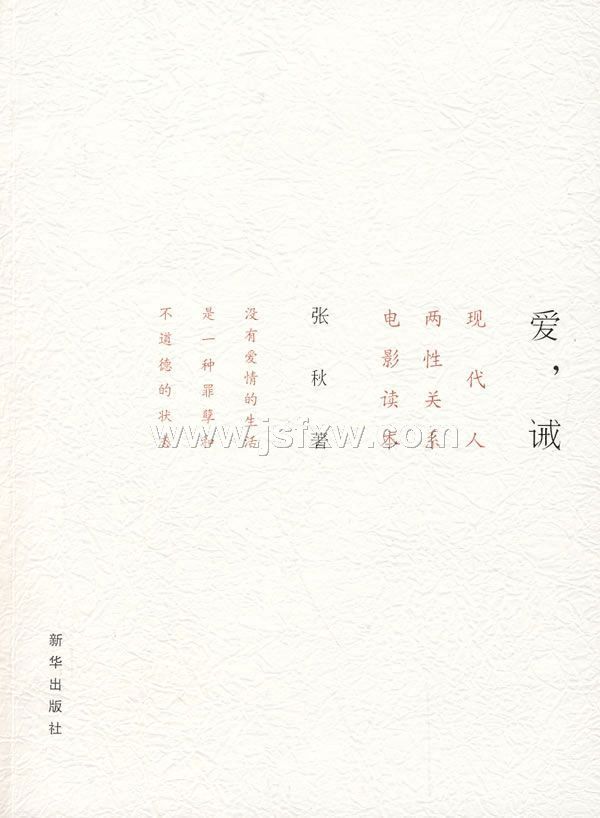 爱，诫
现代人
两性关系
电影读本
张秋 著
没有爱情的生活
是一种罪孽和
不道德的状态
新华出版社
www.jsfxw.com